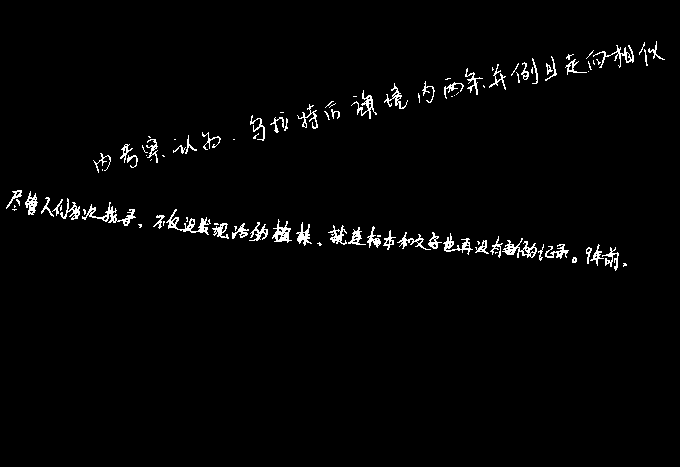 内考察认为.乌拉特后旗境内两条并例且走向相似
尽管人们多次找寻,不仅没发现活的植株、就连标本和文字也再没有新的记录。9年前,